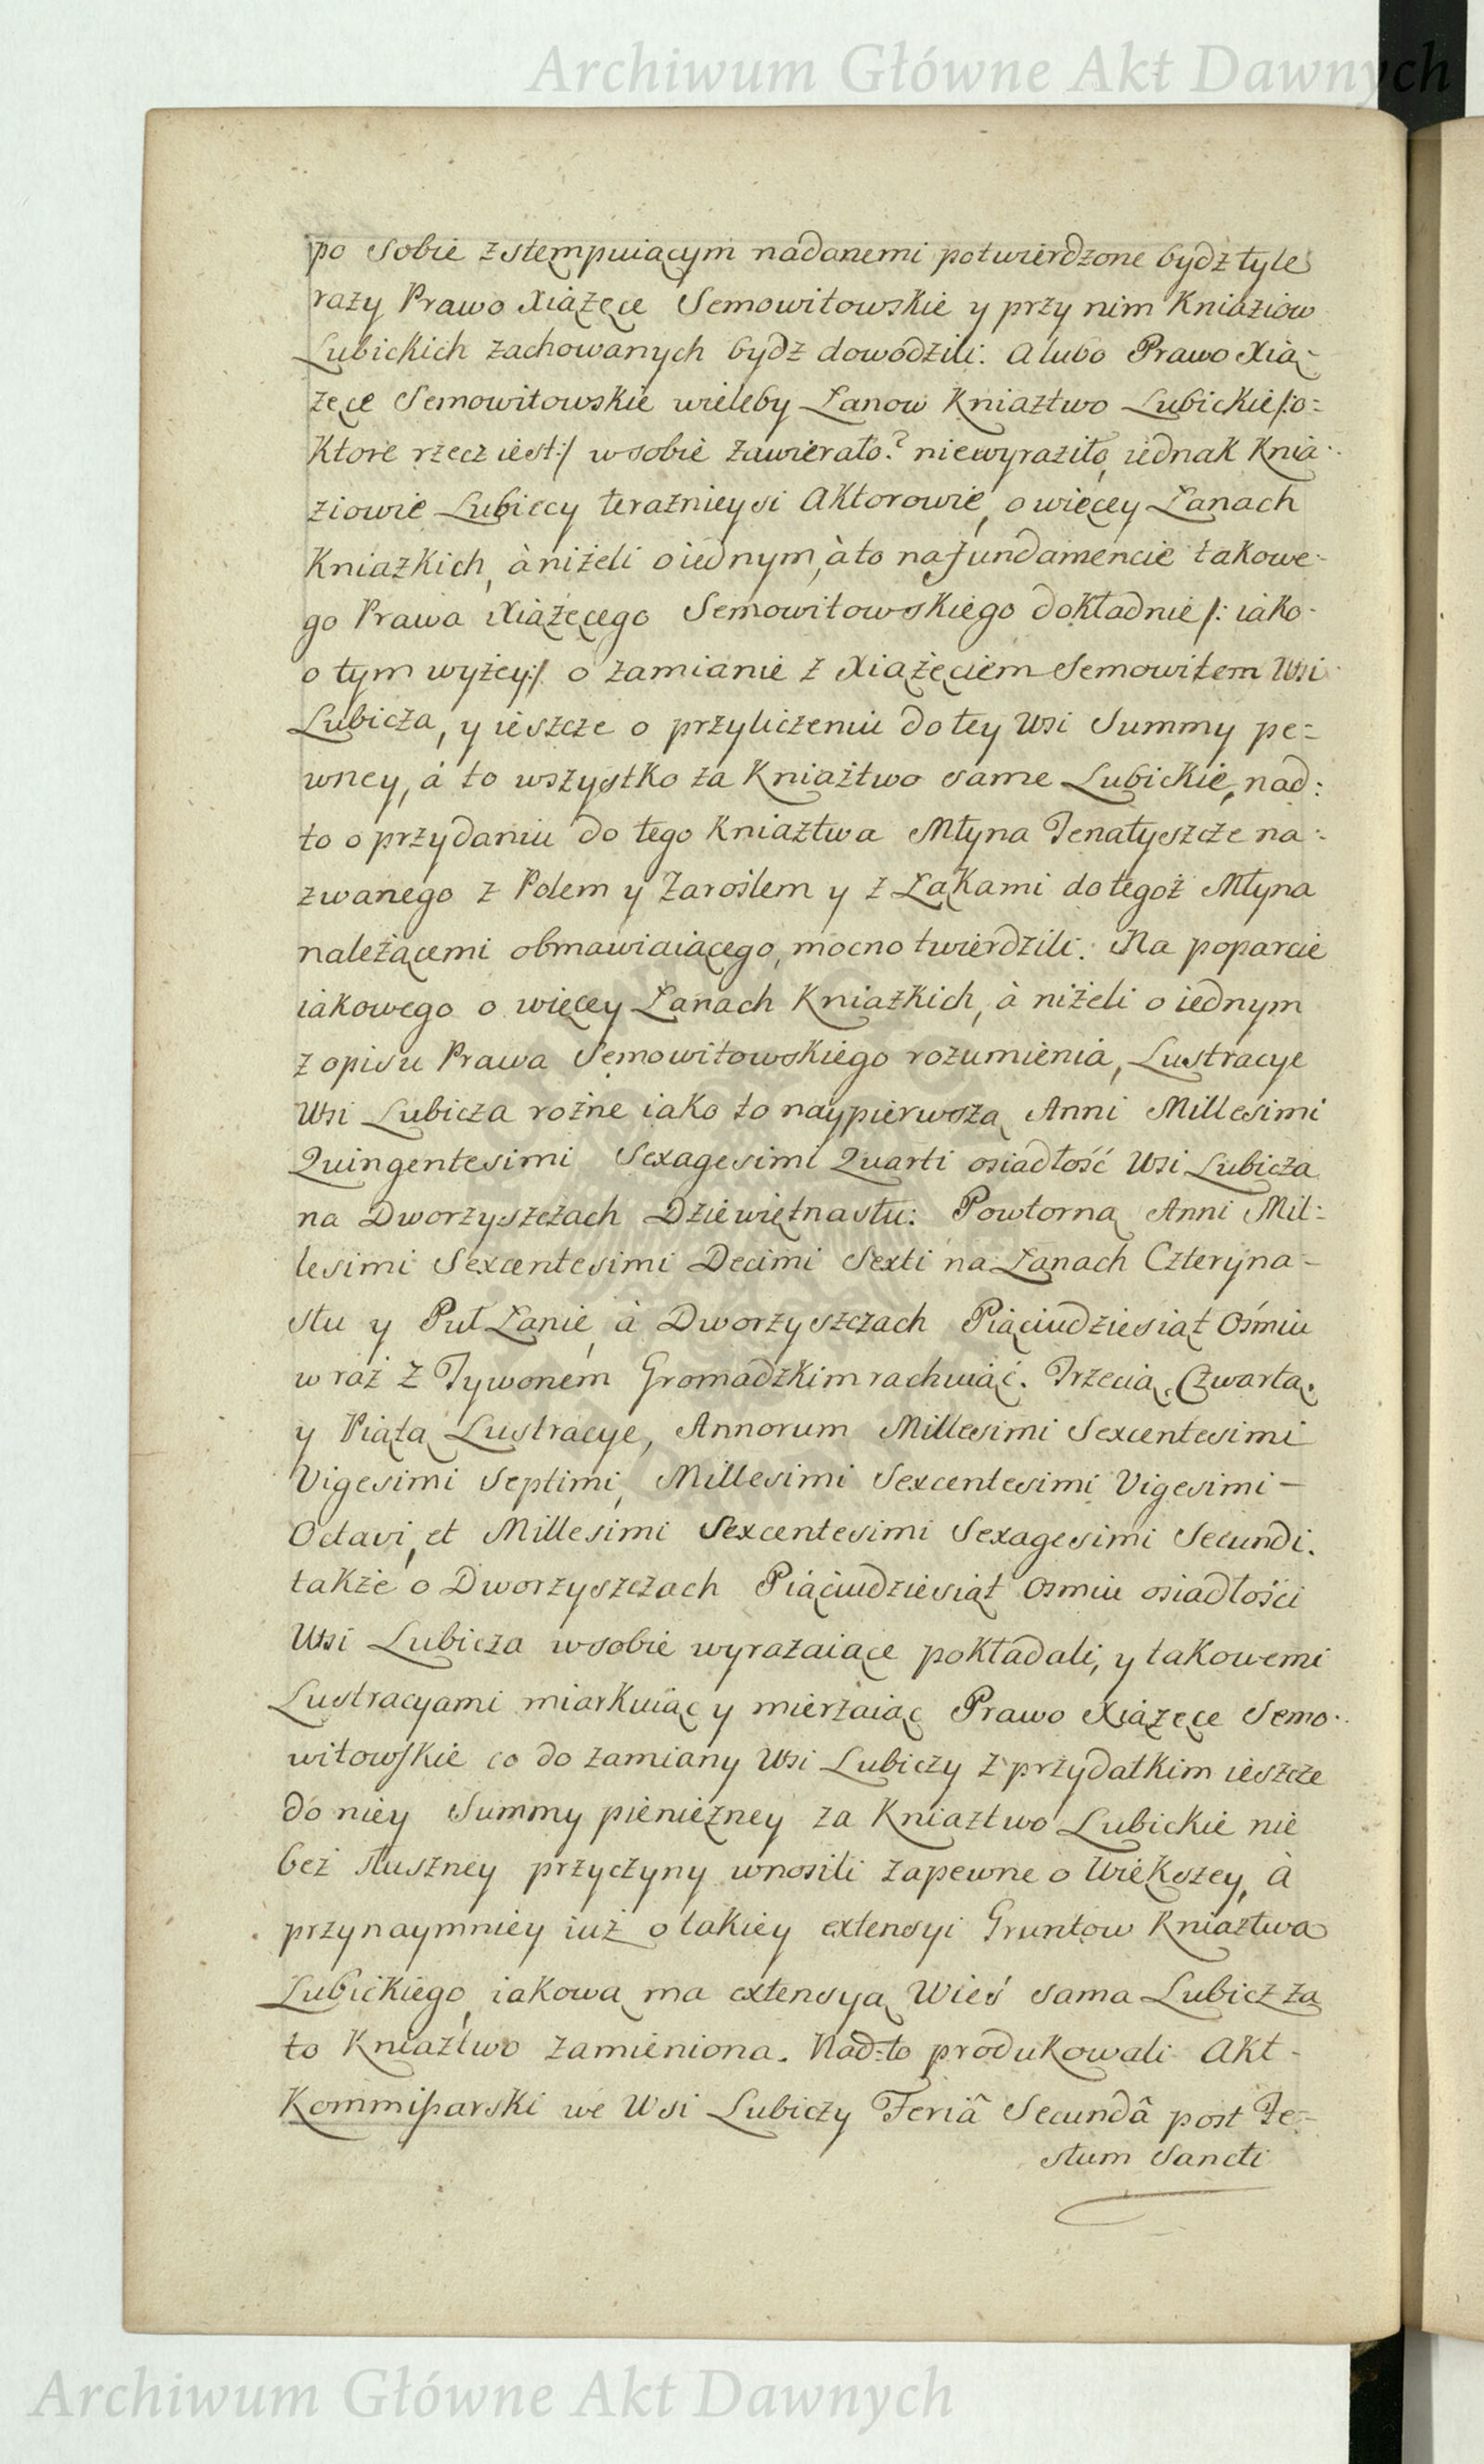 Archiwum Główne Akt Dawnych
po sobie zstempuiącym nadanemi potwierdzone bydz tyle
razy Prawo Xiązęce Semowitowskie y przy nim Kniaziow
Lubickich zachowanych bydz dowodzili: Alubo Prawo Xią-
zęce Semowitowskie wieleby Łanow Kniaztwo Lubickie /:o=
Ktore rzecz iest:/ w sobie zawierało? niewyraziło, iednak Knia-
ziowie Lubiccy teraznieysi Aktorowie, o więcey Łanach
Kniazkich, à niżeli o iednym, à to na fundamencie takowe-
go Prawa Xiążęcego Semowitowskiego dokładnie /: iako-
o tym wyżey:/ o zamianie z Xiążęciem Semowitem Wsi
Lubicza, y ieszcze o przyliczeniu do tey Wsi Summy pe=
wney, à to wszystko za Kniaztwo same Lubickie, nad:
to o przydaniu do tego Kniaztwa Młyna Jenatyszcze na-
zwanego z Polem y Zaroślem y z Łąkami do tegoż Młyna
należącemi obmawiaiącego, mocno twierdzili: Na poparcie
iakowego o więcey Łanach Kniazkich, à niżeli o iednym
z opisu Prawa Semowitowskiego rozumienia, Lustracye
Wsi Lubicza rożne iako to naypierwszą Anni Millesimi
Quingentesimi Sexagesimi Quarti osiadłość Wsi Lubicza
na Dworzyszczach Dziewiętnastu: Powtorną Anni Mil=
lesimi Sexcentesimi Decimi Sexti na Łanach Czteryna-
stu y Puł Łanie, à Dworzyszczach Piąciudziesiąt Ośmiu
w raz z Tywonem Gromadzkim rachuiąc. Trzecią, Czwartą,
y Piątą Lustracye, Annorum Millesimi Sexcentesimi
Vigesimi Septimi, Millesimi Sexcentesimi Vigesimi-
Octavi, et Millesimi Sexcentesimi Sexagesimi Secundi.
także o Dworzyszczach Piąciudziesiąt Osmiu osiadłości
Wsi Lubicza w sobie wyrazaiące pokładali, y takowemi
Lustracyami miarkuiąc y mierzaiąc Prawo Xiązęce Semo-
witowskie co do zamiany Wsi Lubiczy z przydatkim ieszcze
do niey Summy pieniężney za Kniaztwo Lubickie nie
bez słuszney przyczyny wnosili zapewne o Większey, à
przynaymniey iuż o takiey extensyi Gruntow Kniaztwa
Lubickiego, iakową ma extensyą Wieś sama Lubicz za
to Kniaztwo zamieniona. Nad=to produkowali Akt-
Kommissarski we Wsi Lubiczy Feriâ Secundâ post Fe=
stum Sancti
Archiwum Główne Akt Dawnych